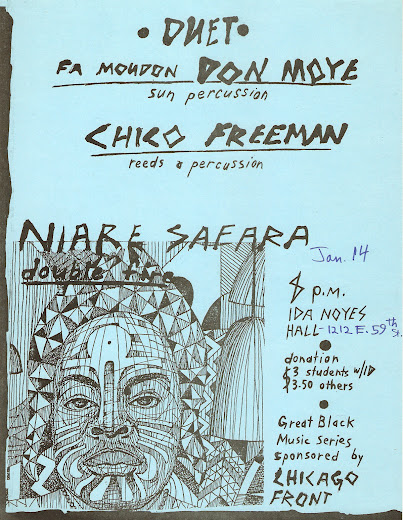 • DUET •
FA MOUDON DON MOYE
sun percussion
CHICO FREEMAN
reeds & percussion
NIARE SAFARA
double tree
Jan. 14
8 p.m.
IDA NOYES
HALL - 1212 E. 59th St.
donation
$3 students w/ID
$3.50 others
Great Black
Music Series
sponsored by
CHICAGO
FRONT